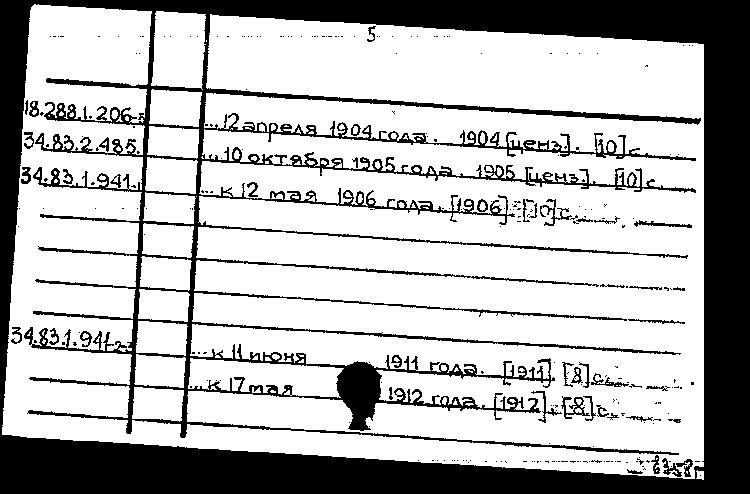 5
18.288.1.206-5 ... 12 апреля 1904 года. 1904 [ценз]. [10] с.
34.83.2.485. ... 10 октября 1905 года. 1905 [ценз]. [10] с.
34.83.1.941-1 ... к 12 мая 1906 года. [1906]. [10] с.
34.83.1.941-2-3 ... к 11 июня 1911 года. [1911]. [8] с.
... к 17 мая 1912 года. [1912]. [8] с.